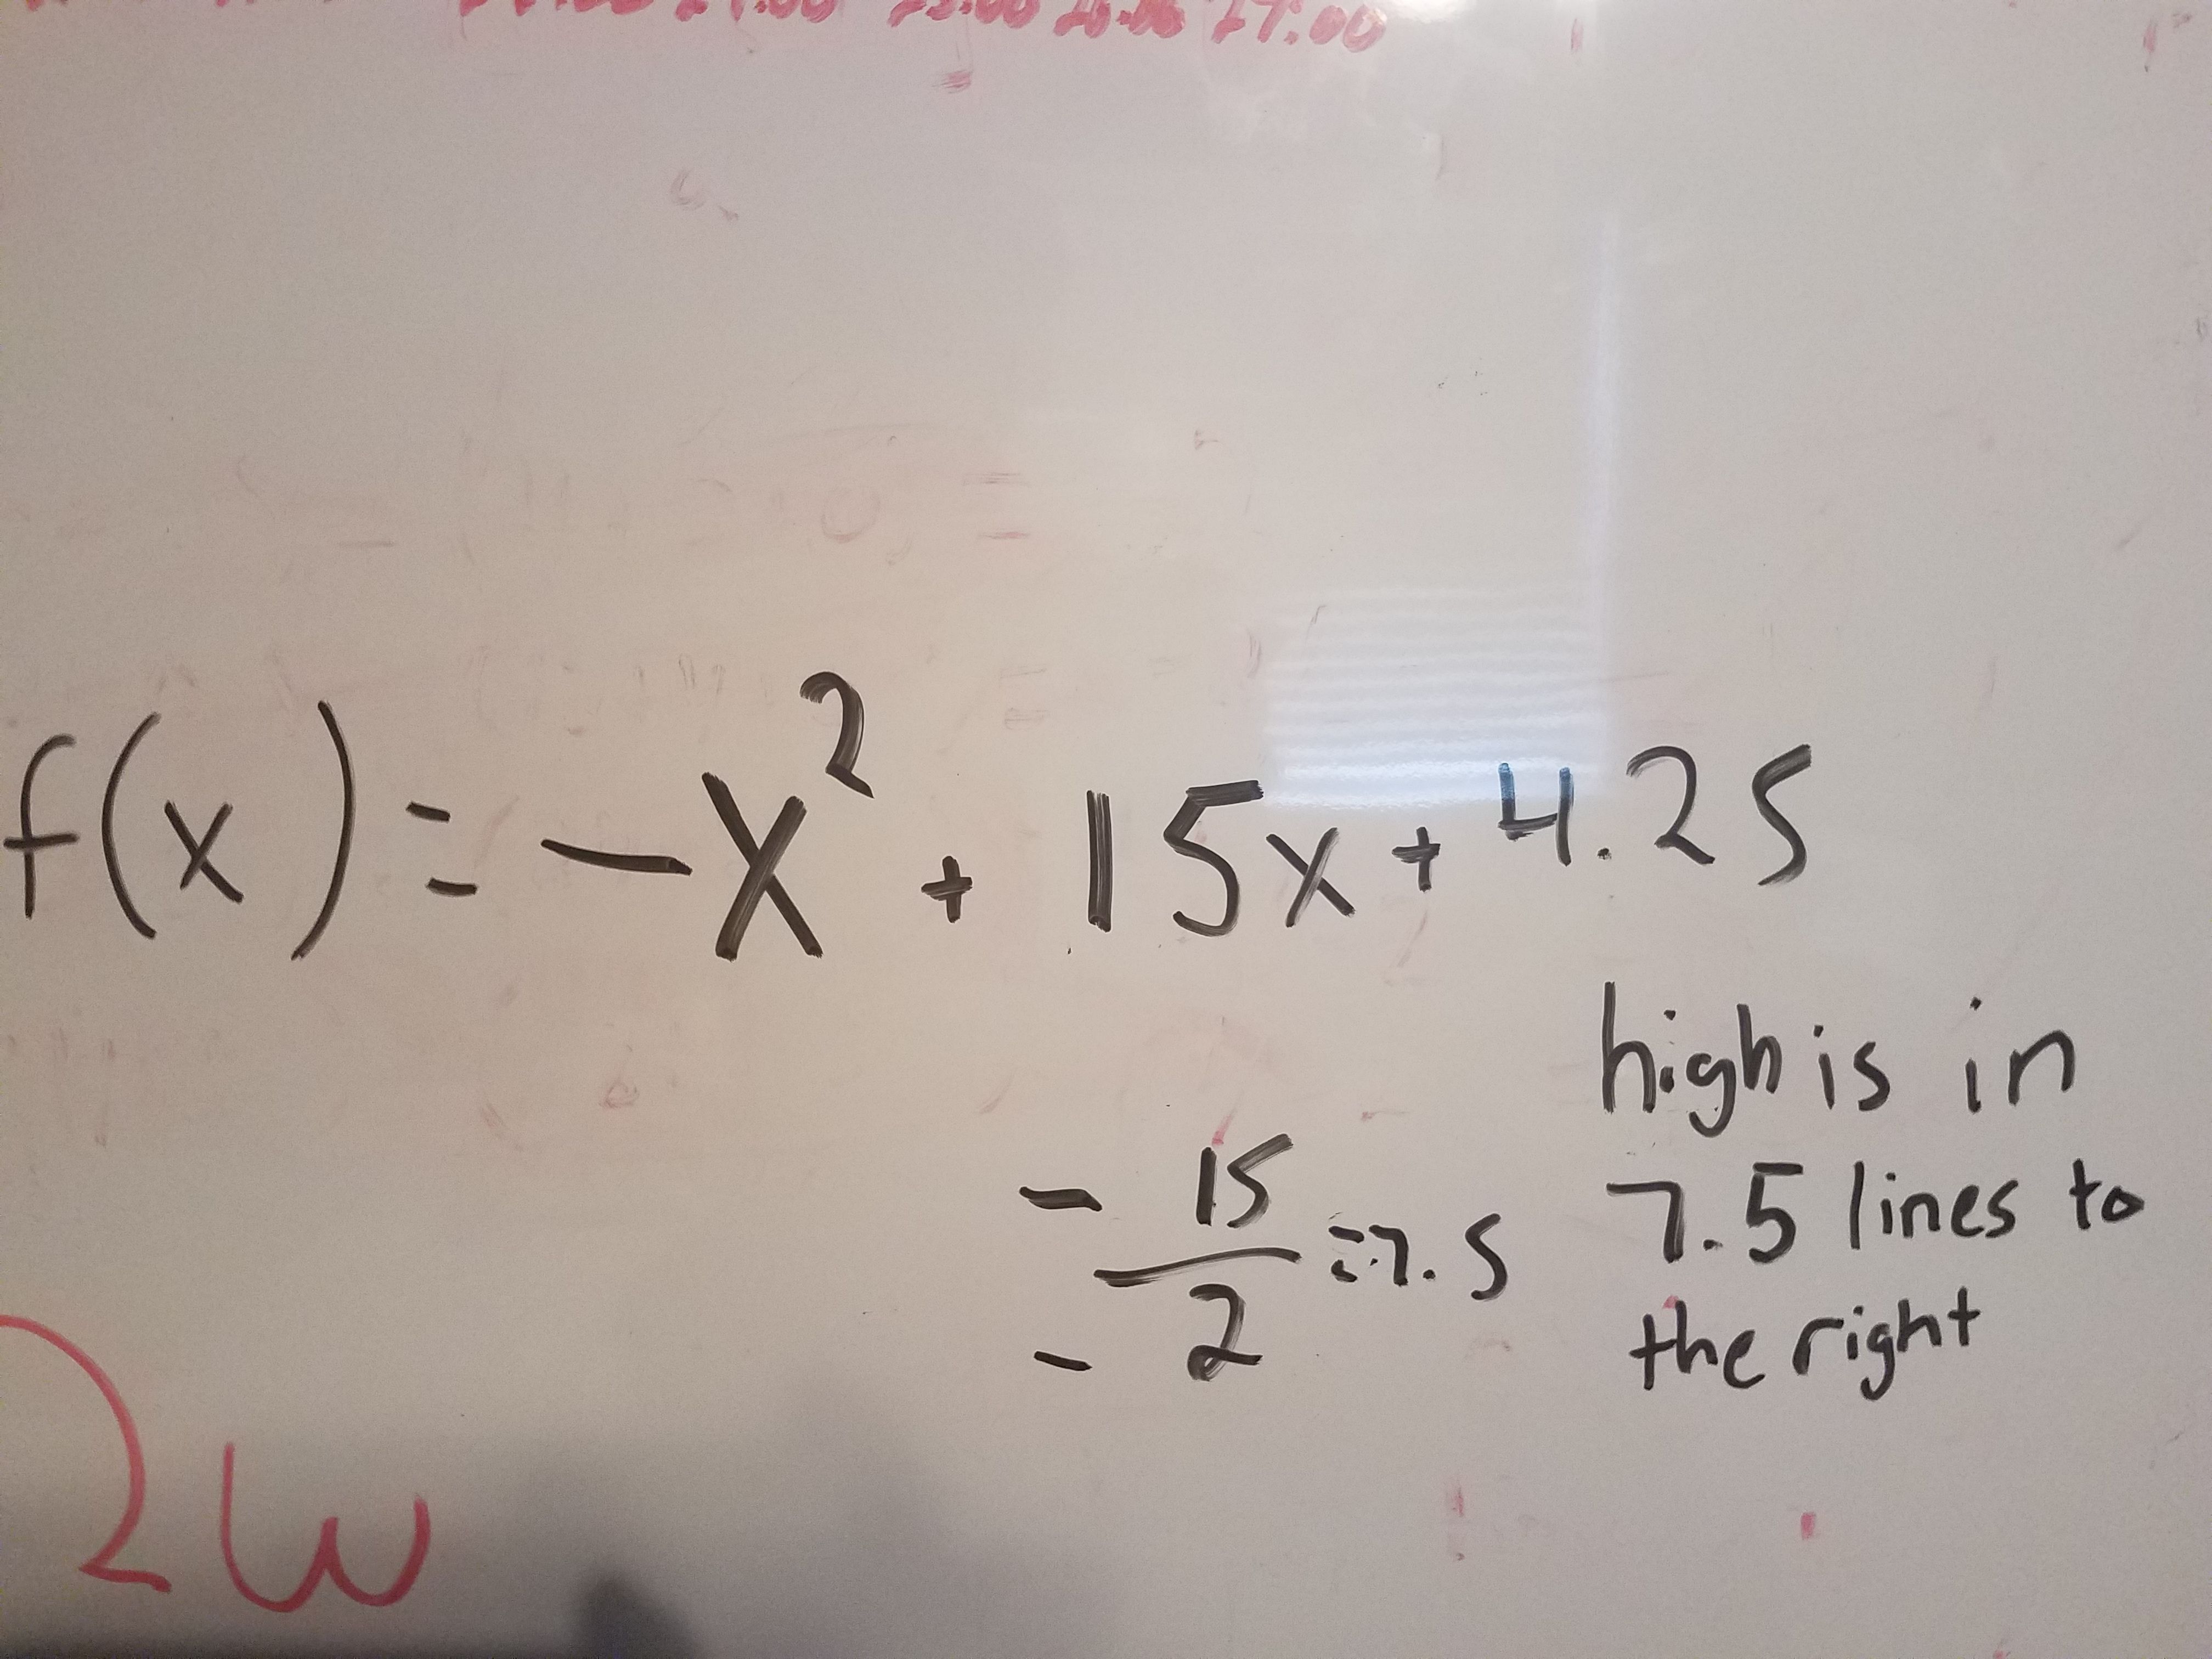 27:00
f(x) = -x² + 15x + 4.25
high is in
-15/-2 = 7.5
7.5 lines to
the right
2w